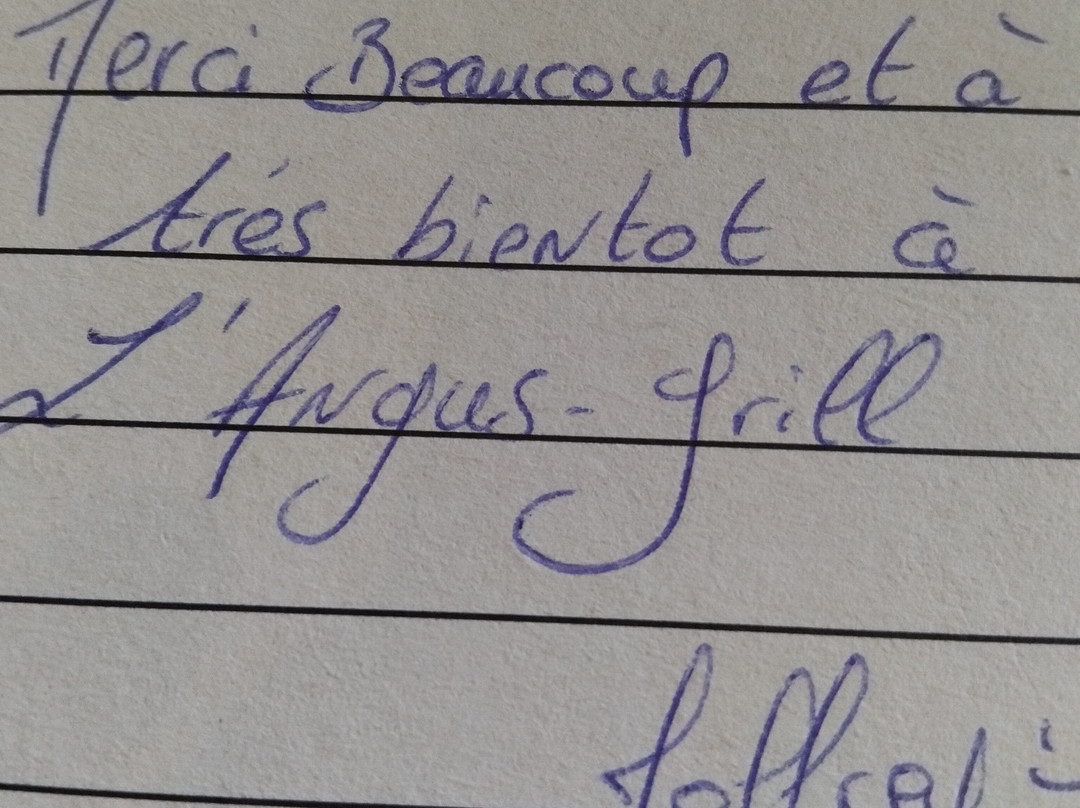 Merci Beaucoup et à
trés bientot à
L'Angus-Grill